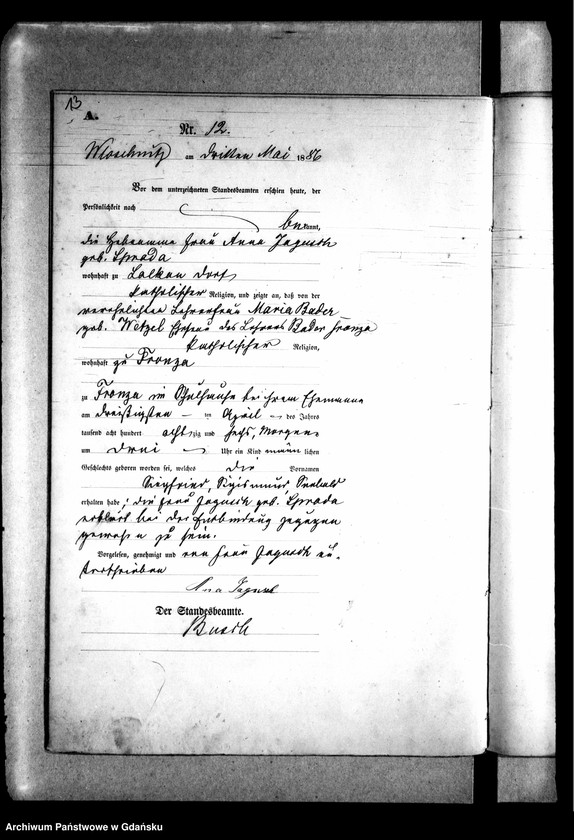 13
A.
Nr. 12.
Wloschnitz am dritten Mai 1886
Vor dem unterzeichneten Standesbeamten erschien heute, der
Persönlichkeit nach
bekannt,
die Hebamme Frau Anna Jagusch
geb. Sprada
wohnhaft zu Lalkau Dorf
katholischer Religion, und zeigte an, daß von der
verehelichten Lehrerfrau Maria Bader
geb. Wetzel Ehefrau des Lehrers Bader Fronza
katholischer Religion,
wohnhaft zu Fronza
zu Fronza im Schulhause bei ihrem Ehemanne
am dreißigsten ten April des Jahres
tausend acht hundert achtzig und sechs, Morgens
um drei Uhr ein Kind männlichen
Geschlechts geboren worden sei, welches die Vornamen
Siegfried, Sigismund
erhalten habe; die Frau Jagusch geb. Sprada
erklärt bei der Entbindung zugegen
gewesen zu sein.
Vorgelesen, genehmigt und von Frau Jagusch un-
terschrieben
Anna Jagusch
Der Standesbeamte.
Busch
Archiwum Państwowe w Gdańsku